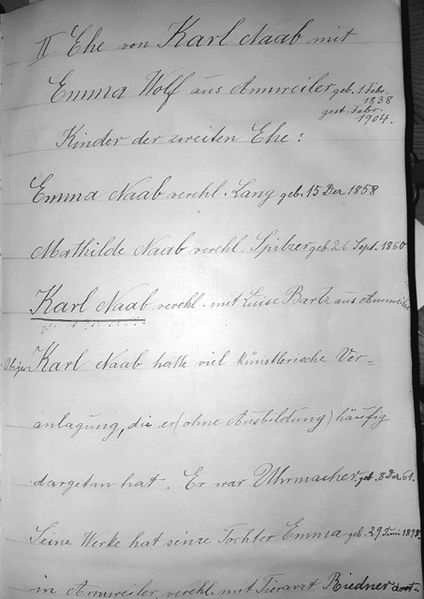 II Ehe von Karl Naab mit
Emma Wolf aus Annweiler geb. 1 Febr. 1838
gest. Febr. 1904.
Kinder der zweiten Ehe:
Emma Naab verehl. Lang geb. 15 Dez 1858
Mathilde Naab verehl. Spitzer geb 26 Sept. 1860
Karl Naab verehl. mit Luise Bartz aus Annweiler
Obiger Karl Naab hatte viel künstlerische Ver-
anlagung, die er (ohne Ausbildung) häufig
dargetan hat. Er war Uhrmacher. geb. 8 Dez 61.
Seine Werke hat seine Tochter Emma geb. 29 Juni 1898
in Annweiler, verehl. mit Tierarzt Riedner dort.